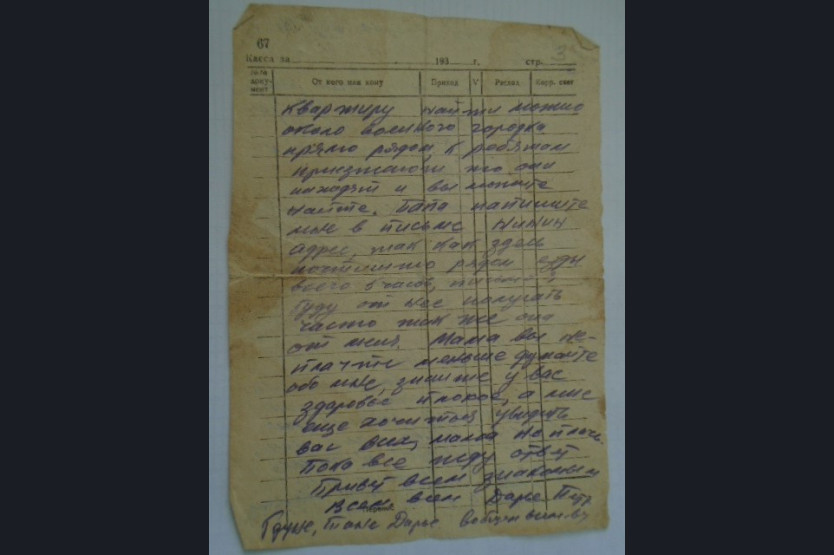 67
Касса за 193 г. стр. 3
Дата докумен- мент От кого или кому Приход V Расход Корр. счет
квартиру найти можно
около военного городка
прямо рядом к ребятам
приезжают то они
находят и вы можете
найте. Папа напишите
мне в письме Нинин
адрес, так как здесь
рядом езды
всего 6 часов,
буду от нее получать
часто так же она
от меня. Мама вы не
плачте меньше думайте
обо мне, знаите у вас
здоровье плохое, а мне
еще хочится увидить
вас всех, мама не плач.
Пока все жду ответ
Привет всем знакомым
всем всем Дарье Петр
Дарье